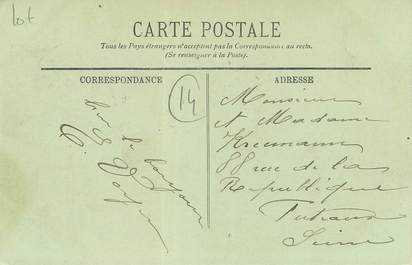 Lot
CARTE POSTALE
Tous les Pays étrangers n'acceptent pas la Correspondance au recto.
(Se renseigner à la Poste).
CORRESPONDANCE
ADRESSE
14
le bonjour
Monsieur
et Madame
88 rue de la
République
Puteaux
Seine